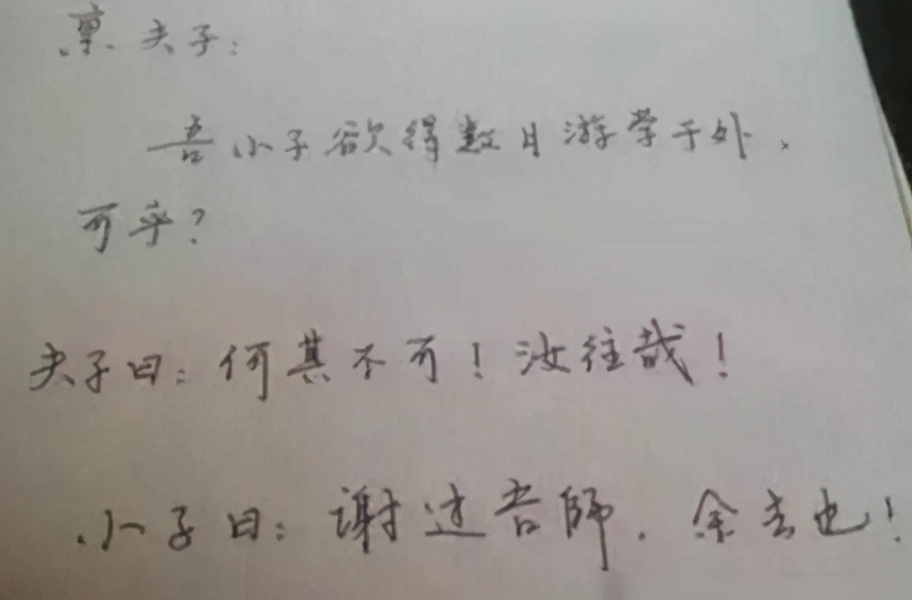 禀夫子:
吾小子欲得数日游学于外,
可乎?
夫子曰:何其不可!汝往哉!
小子曰:谢过吾師.余去也!